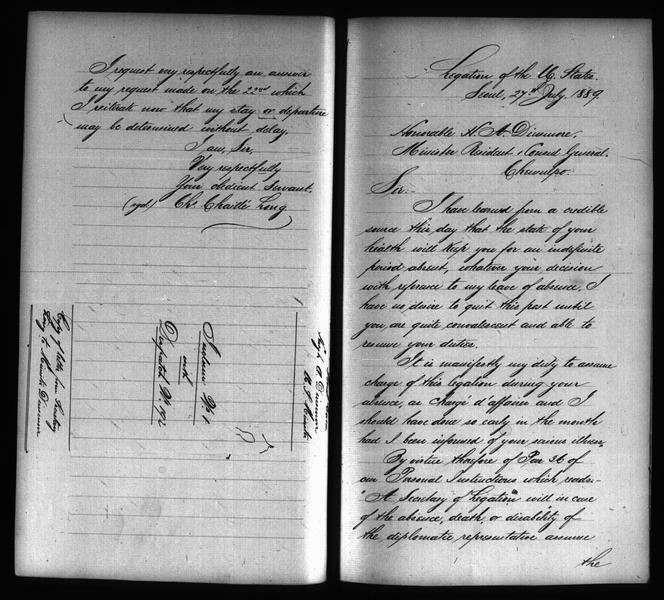 I request very respectfully an answer
to my request made on the 22nd which
I reiterate now that my stay or departure
may be determined without delay.
I am, Sir,
Very respectfully
Your obedient Servant.
(sgd) Chs. Chaillé Long
Inclosure No. 1
with
Despatch No 192
Copy of letter from Secretary
Long to Minister Dinsmore
Hugh A Dinsmore
Legation of the U. States.
Seoul, 27th July, 1889.
Honorable H. A. Dinsmore,
Minister Resident & Consul General.
Chemulpo.
Sir:
I have learned from a credible
source this day that the state of your
health will keep you for an indefinite
period absent, whatever your decision
with reference to my leave of absence, I
have no desire to quit this post until
you are quite convalescent and able to
resume your duties.
It is manifestly my duty to assume
charge of this legation during your
absence, as Chargé d'affaires and I
should have done so early in the month
had I been informed of your serious illness.
By virtue therefore of Par 36 of
our Personal Instructions which reads-
"A Secretary of Legation" will in case
of the absence, death, or disability of
the diplomatic representative assume
the